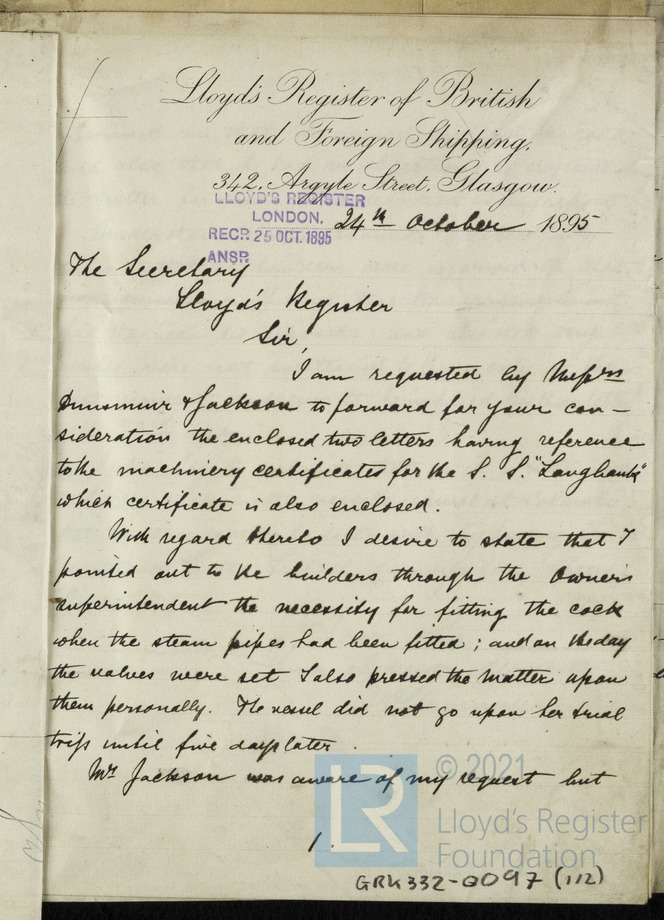 Lloyd's Register of British
and Foreign Shipping.
342, Argyle Street, Glasgow.
LLOYD'S REGISTER
LONDON.
RECD. 25 OCT. 1895
ANSD.
24th October 1895
The Secretary
Lloyd's Register
Sir,
I am requested by Messrs
Dunsmuir & Jackson to forward for your con-
sideration the enclosed two letters having reference
to the machinery certificates for the S. S. "Langbank"
which certificate is also enclosed.
With regard thereto I desire to state that I
pointed out to the builders through the Owner's
superintendent the necessity for fitting the cock
when the steam pipes had been fitted; and on the day
the valves were set I also pressed the matter upon
them personally. The vessel did not go upon her trial
trip until five days later.
Mr Jackson was aware of my request but
1.
LR
© 2021
Lloyd's Register
Foundation
GRK332-0097 (1/2)